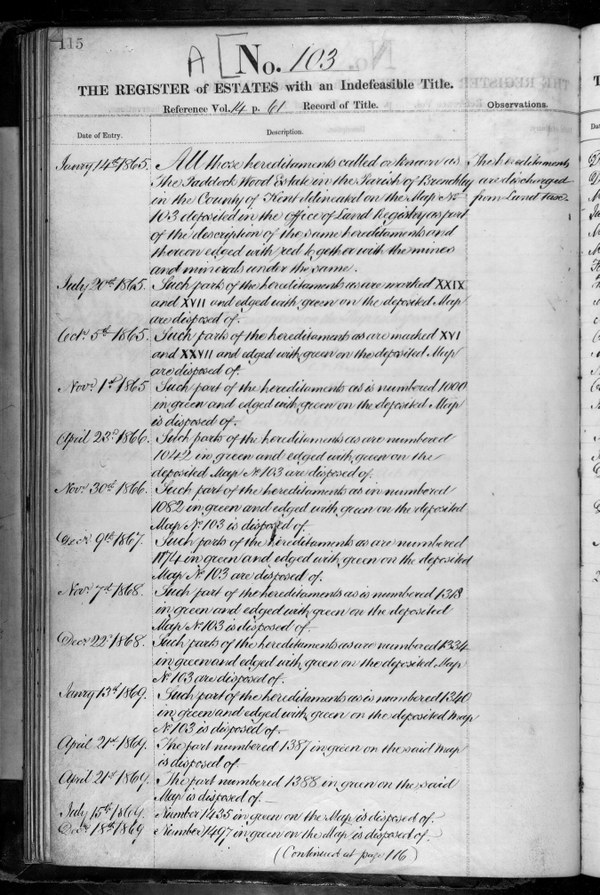 115
A [ No. 103
THE REGISTER of ESTATES with an Indefeasible Title.
Reference Vol. 14 p. 61 Record of Title.
Observations.
Date of Entry.
Description.
Janry 14th 1865. All those hereditaments called or known as
The Paddock Wood Estate in the Parish of Brenchley
in the County of Kent delineated on the Map No.
103 deposited in the Office of Land Registry as part
of the description of the same hereditaments and
thereon edged with red together with the mines
and minerals under the same.
The hereditaments
are discharged
from Land Tax.
July 20th 1865. Such parts of the hereditaments as are marked XXIX
and XVII and edged with green on the deposited Map
are disposed of.
Octr. 5th 1865. Such parts of the hereditaments as are marked XVI
and XXVII and edged with green on the deposited Map
are disposed of.
Novr. 1st 1865 Such part of the hereditaments as is numbered 1000
in green and edged with green on the deposited Map
is disposed of.
April 23d 1866. Such parts of the hereditaments as are numbered
1042 in green and edged with green on the
deposited Map No. 103 are disposed of.
Novr. 30th 1866. Such part of the hereditaments as in numbered
1082 in green and edged with green on the deposited
Map No. 103 is disposed of.
Decr. 9th 1867. Such parts of the hereditaments as are numbered
1174 in green and edged with green on the deposited
Map No. 103 are disposed of.
Novr. 7th 1868. Such part of the hereditaments as is numbered 1318
in green and edged with green on the deposited
Map No. 103 is disposed of.
Decr 22d 1868. Such parts of the hereditaments as are numbered 1334
in green and edged with green on the deposited Map
No. 103 are disposed of.
Janry 13th 1869. Such part of the hereditaments as is numbered 1340
in green and edged with green on the deposited Map
No. 103 is disposed of.
April 21st 1869. The part numbered 1387 in green on the said Map
is disposed of
April 21st 1869. The part numbered 1388 in green on the said
Map is disposed of.
July 15th 1869. Number 1435 in green on the Map is disposed of.
Decr. 18th 1869 Number 1497 in green on the Map is disposed of.
(Continued at page 116)